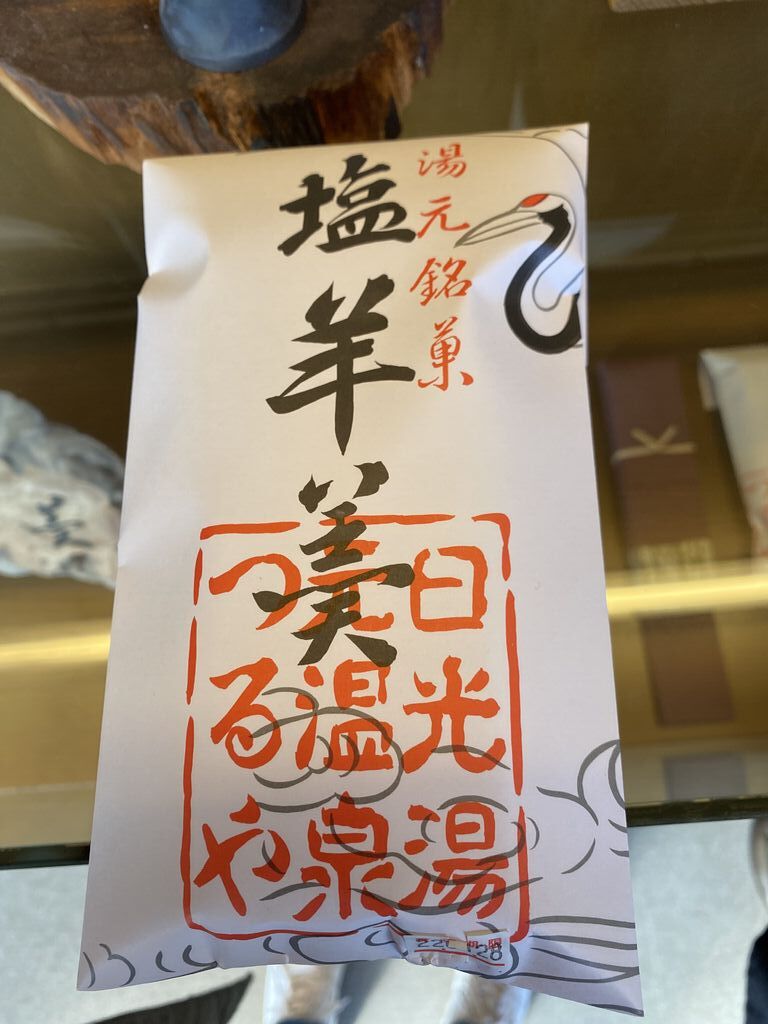 湯元銘菓
塩羊羹
日光湯
元温泉
つるや